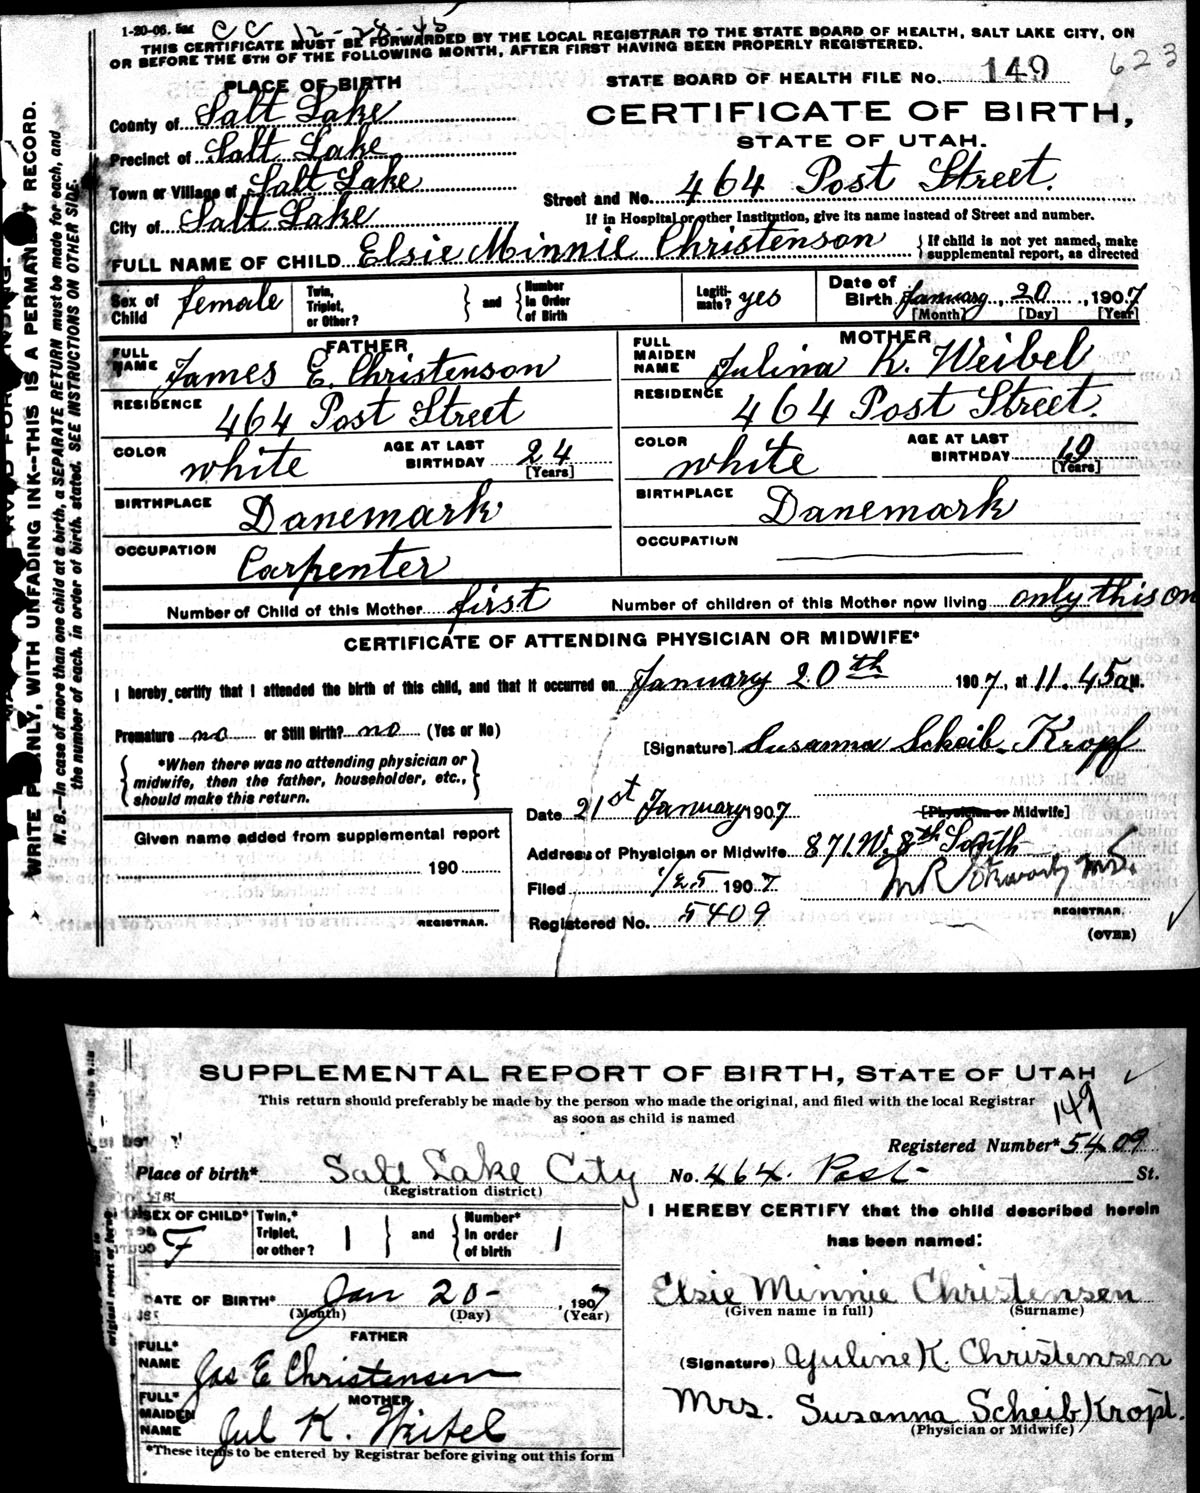 1-20-06. 5M CC 12-28-45
THIS CERTIFICATE MUST BE FORWARDED BY THE LOCAL REGISTRAR TO THE STATE BOARD OF HEALTH, SALT LAKE CITY, ON
OR BEFORE THE 5TH OF THE FOLLOWING MONTH, AFTER FIRST HAVING BEEN PROPERLY REGISTERED.
623
STATE BOARD OF HEALTH FILE NO. 149
CERTIFICATE OF BIRTH,
STATE OF UTAH.
PLACE OF BIRTH
County of Salt Lake
Precinct of Salt Lake
Town or Village of Salt Lake
City of Salt Lake
Street and No. 464 Post Street.
If in Hospital or other Institution, give its name instead of Street and number.
FULL NAME OF CHILD Elsie Minnie Christenson } If child is not yet named, make supplemental report, as directed
Sex of Child female Twin, Triplet, or Other? } and { Number in Order of Birth Legiti-mate? yes Date of Birth January, 20, 1907
[Month] [Day] [Year]
FATHER
FULL NAME James E. Christenson
RESIDENCE 464 Post Street
COLOR white AGE AT LAST BIRTHDAY 24 [Years]
BIRTHPLACE Danemark
OCCUPATION Carpenter
MOTHER
FULL MAIDEN NAME Julina K. Weibel
RESIDENCE 464 Post Street.
COLOR white AGE AT LAST BIRTHDAY 19 [Years]
BIRTHPLACE Danemark
OCCUPATION
Number of Child of this Mother first Number of children of this Mother now living only this on
CERTIFICATE OF ATTENDING PHYSICIAN OR MIDWIFE*
I hereby certify that I attended the birth of this child, and that it occurred on January 20th 1907, at 11.45 a M.
Premature no or Still Birth? no (Yes or No)
[Signature] Susanna Scheib-Kropf
*When there was no attending physician or
midwife, then the father, householder, etc.,
should make this return.
[Physician or Midwife]
Date 21st January 1907
Address of Physician or Midwife 871.W. 8th South
Given name added from supplemental report
190
REGISTRAR.
Filed 1/25 1907
Registered No. 5409
REGISTRAR.
(OVER)
WRITE PLAINLY, WITH UNFADING INK--THIS IS A PERMANENT RECORD.
N. B.--In case of more than one child at a birth, a SEPARATE RETURN must be made for each, and
the number of each, in order of birth, stated. SEE INSTRUCTIONS ON OTHER SIDE.
SUPPLEMENTAL REPORT OF BIRTH, STATE OF UTAH
This return should preferably be made by the person who made the original, and filed with the local Registrar
as soon as child is named
149
Registered Number* 5409
Place of birth* Salt Lake City No. 464. Post St.
(Registration district)
SEX OF CHILD* F Twin,* Triplet, or other? 1 } and { Number* In order of birth 1
DATE OF BIRTH* Jan 20 - , 1907
(Month) (Day) (Year)
FATHER
FULL* NAME Jas E Christensen
MOTHER
FULL* MAIDEN NAME Jul K. Weibel
*These items to be entered by Registrar before giving out this form
I HEREBY CERTIFY that the child described herein
has been named:
Elsie Minnie Christensen
(Given name in full) (Surname)
(Signature) Yuline K. Christensen
Mrs. Susanna Scheib Kropf.
(Physician or Midwife)